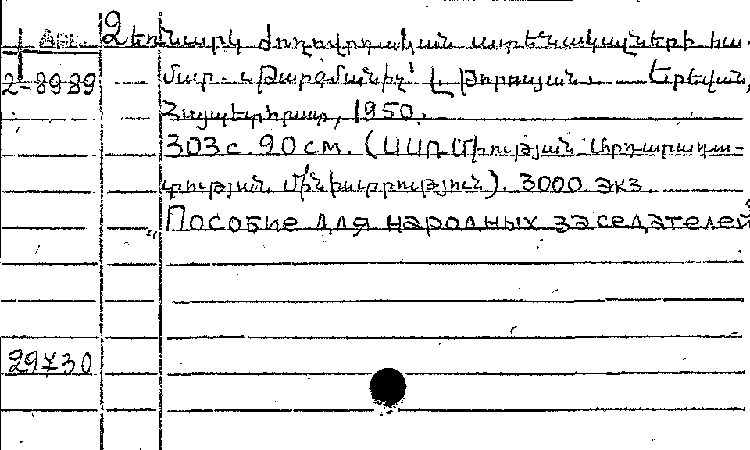 Арм. Ձեռնարկ ժողովրդական ատենակալների հա-
2-8989 մար. Թարգմանիչ՝ Լ. Թորոսյան. Երեվան,
Հայպետհրատ, 1950.
303 с. 20 см. (ՍՍՌ Միության Արդարադա-
տության Մինիստրություն). 3000 экз.
"Пособие для народных заседателей
29730